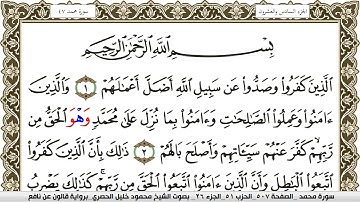 الجزء السادس والعشرون
سورة محمد ٤٧
بِسْمِ اللَّهِ الرَّحْمَٰنِ الرَّحِيمِ
الَّذِينَ كَفَرُوا وَصَدُّوا عَن سَبِيلِ اللَّهِ أَضَلَّ أَعْمَٰلَهُمْ ١ وَالَّذِينَ
ءَامَنُوا وَعَمِلُوا الصَّٰلِحَٰتِ وَءَامَنُوا بِمَا نُزِّلَ عَلَىٰ مُحَمَّدٍ وَهْوَ الْحَقُّ مِن
رَّبِّهِمْ كَفَّرَ عَنْهُمْ سَيِّـَٔاتِهِمْ وَأَصْلَحَ بَالَهُمْ ٢ ذَٰلِكَ بِأَنَّ الَّذِينَ كَفَرُوا
اتَّبَعُوا الْبَٰطِلَ وَأَنَّ الَّذِينَ ءَامَنُوا اتَّبَعُوا الْحَقَّ مِن رَّبِّهِمْ كَذَٰلِكَ يَضْرِبُ
سورة محمد _ الصفحة ٥٠٧ الحزب ٥١ الجزء ٢٦ _ بصوت الشيخ محمود خليل الحصري _ برواية قالون عن نافع